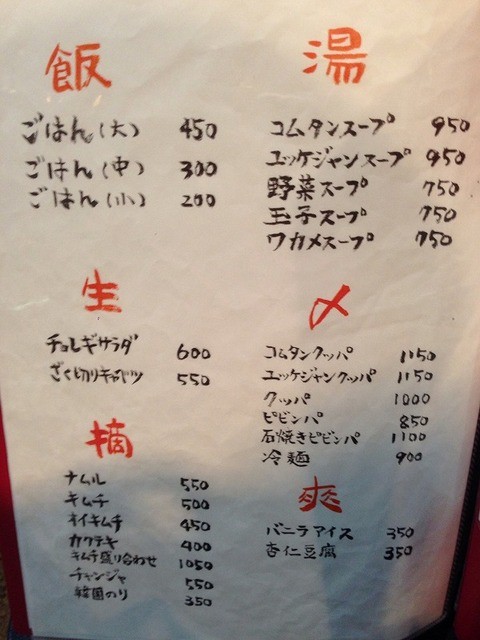 飯
ごはん(大) 450
ごはん(中) 300
ごはん(小) 200
生
チョレギサラダ 600
ざく切りキャベツ 550
摘
ナムル 550
キムチ 500
オイキムチ 450
カクテキ 400
キムチ盛り合わせ 1050
チャンジャ 550
韓国のり 350
湯
コムタンスープ 950
ユッケジャンスープ 950
野菜スープ 750
玉子スープ 750
ワカメスープ 750
〆
コムタンクッパ 1150
ユッケジャンクッパ 1150
クッパ 1000
ビビンパ 850
石焼きビビンパ 1100
冷麺 900
爽
バニラアイス 350
杏仁豆腐 350